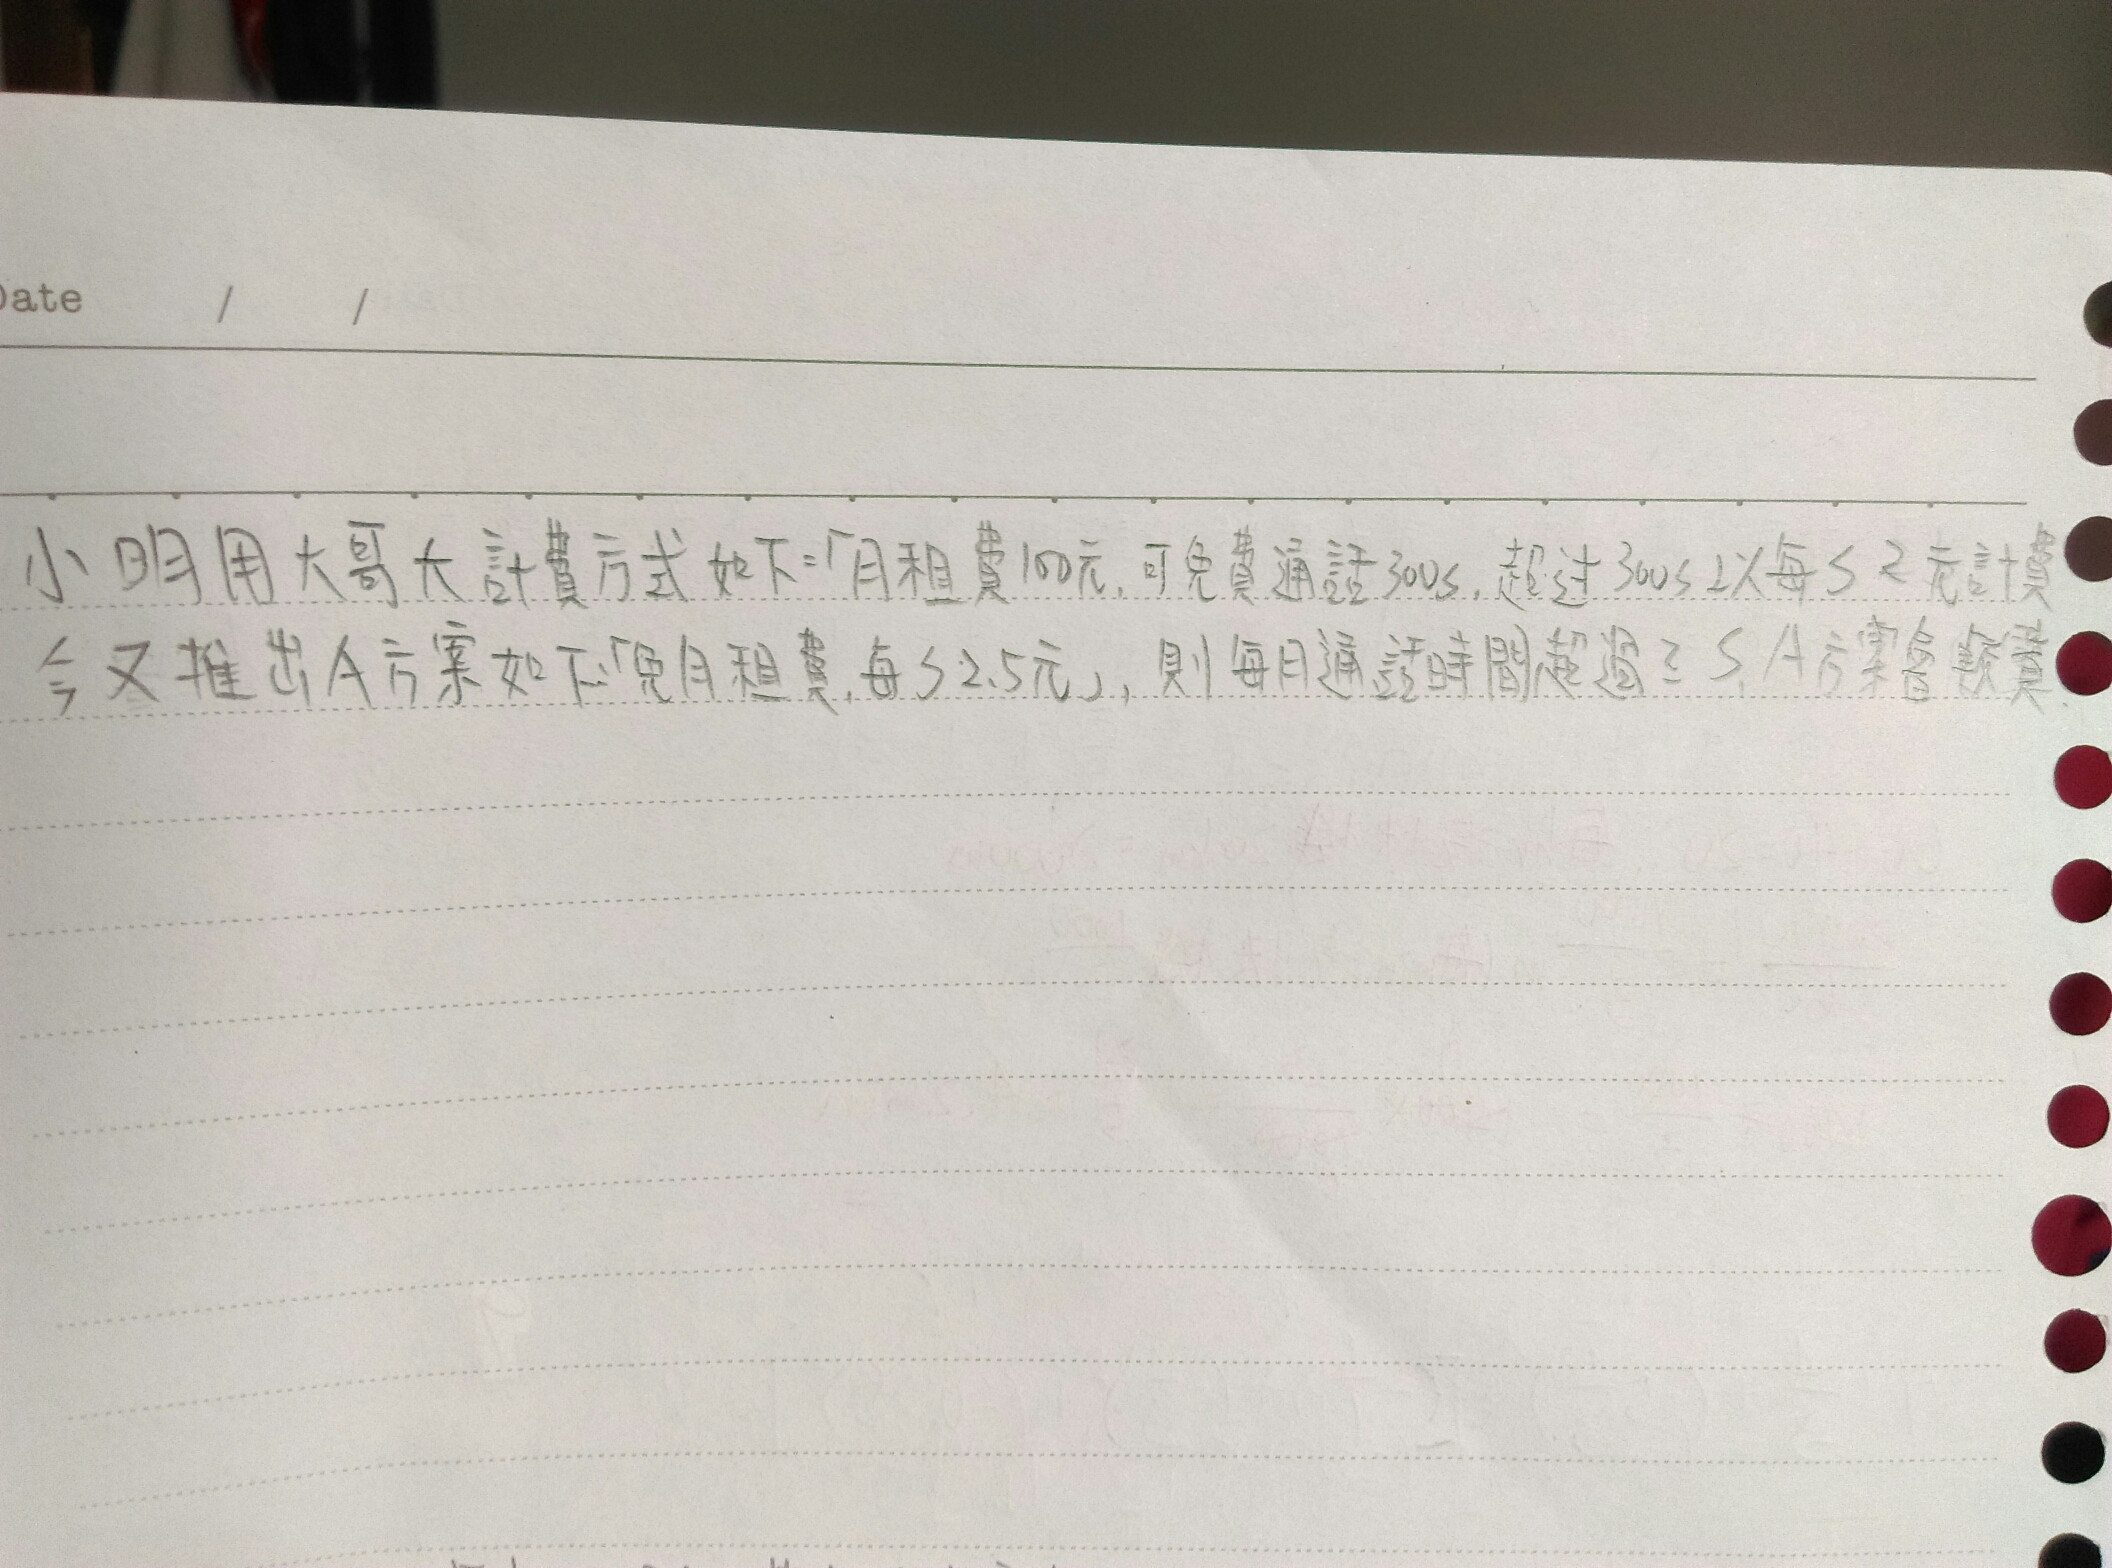 Date / /
小明用大哥大計費方式如下=「月租費100元,可免費通話300s,超过300s以每s2元計費
今又推出A方案如下:「免月租費,每s2.5元」,則每月通話時間超過?s,A方案會較貴.